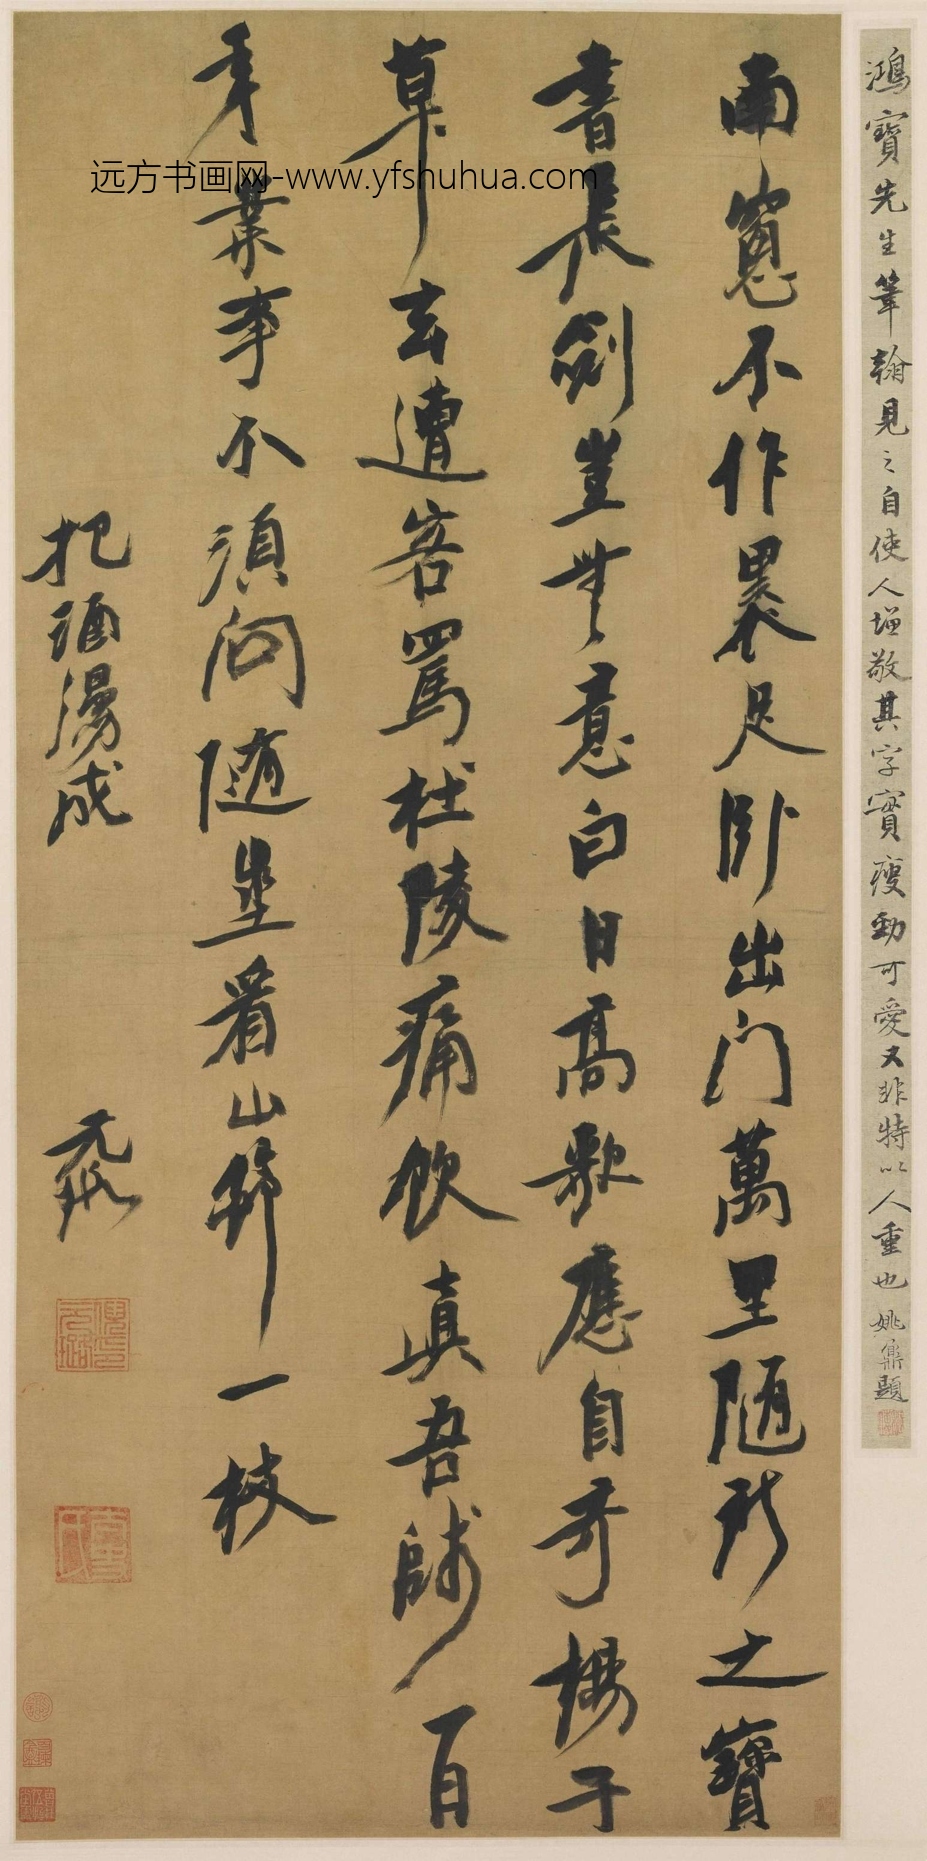 鴻寶先生筆翰見之自使人增敬其字實瘦勁可愛又非特以人重也姚鼐題
南窻不作累足卧出门萬里隨所之寶
書長劍豈無意白日高歌應自奇揚子
草玄遭客罵杜陵痛飲真吾師百
年業事不須问隨坐看山笻一枝
把酒漫成
元璐
远方书画网-www.yfshuhua.com